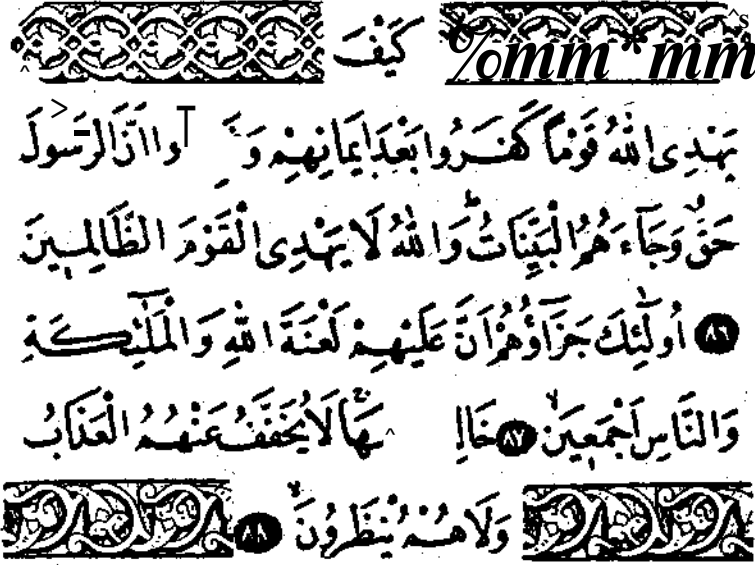 كَيْفَ %mm*mm
يَهْدِى اللهُ قَوْمًا كَفَرُوا بَعْدَ اِيمَانِهِمْ وَ وا اَنَّ الرَسُولَ
حَقٌّ وَجَاۤءَ هُمُ الْبَيِّنَاتُ وَاللهُ لَا يَهْدِى الْقَوْمَ الظَّالِمِينَ
﴿٨٦﴾ اُولٰۤئِكَ جَزَاۤؤُهُمْ اَنَّ عَلَيْهِمْ لَعْنَةَ اللهِ وَالْمَلٰۤئِكَةِ
وَالنَّاسِ اَجْمَعِينَ ﴿٨٧﴾ خَاا هَا لَا يُخَفَّفُ عَنْهُمُ الْعَذَابُ
وَلَا هُمْ يُنْظَرُونَ ﴿٨٨﴾